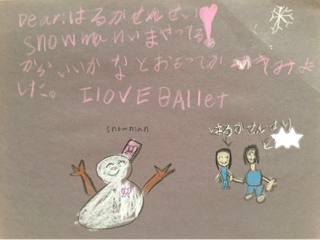 Dear:はるかせんせい
snowmanいまやってる
からいいかなとおもってかいてみま
した。 I LOVE BALLet
snowman
はるかせんせい
と